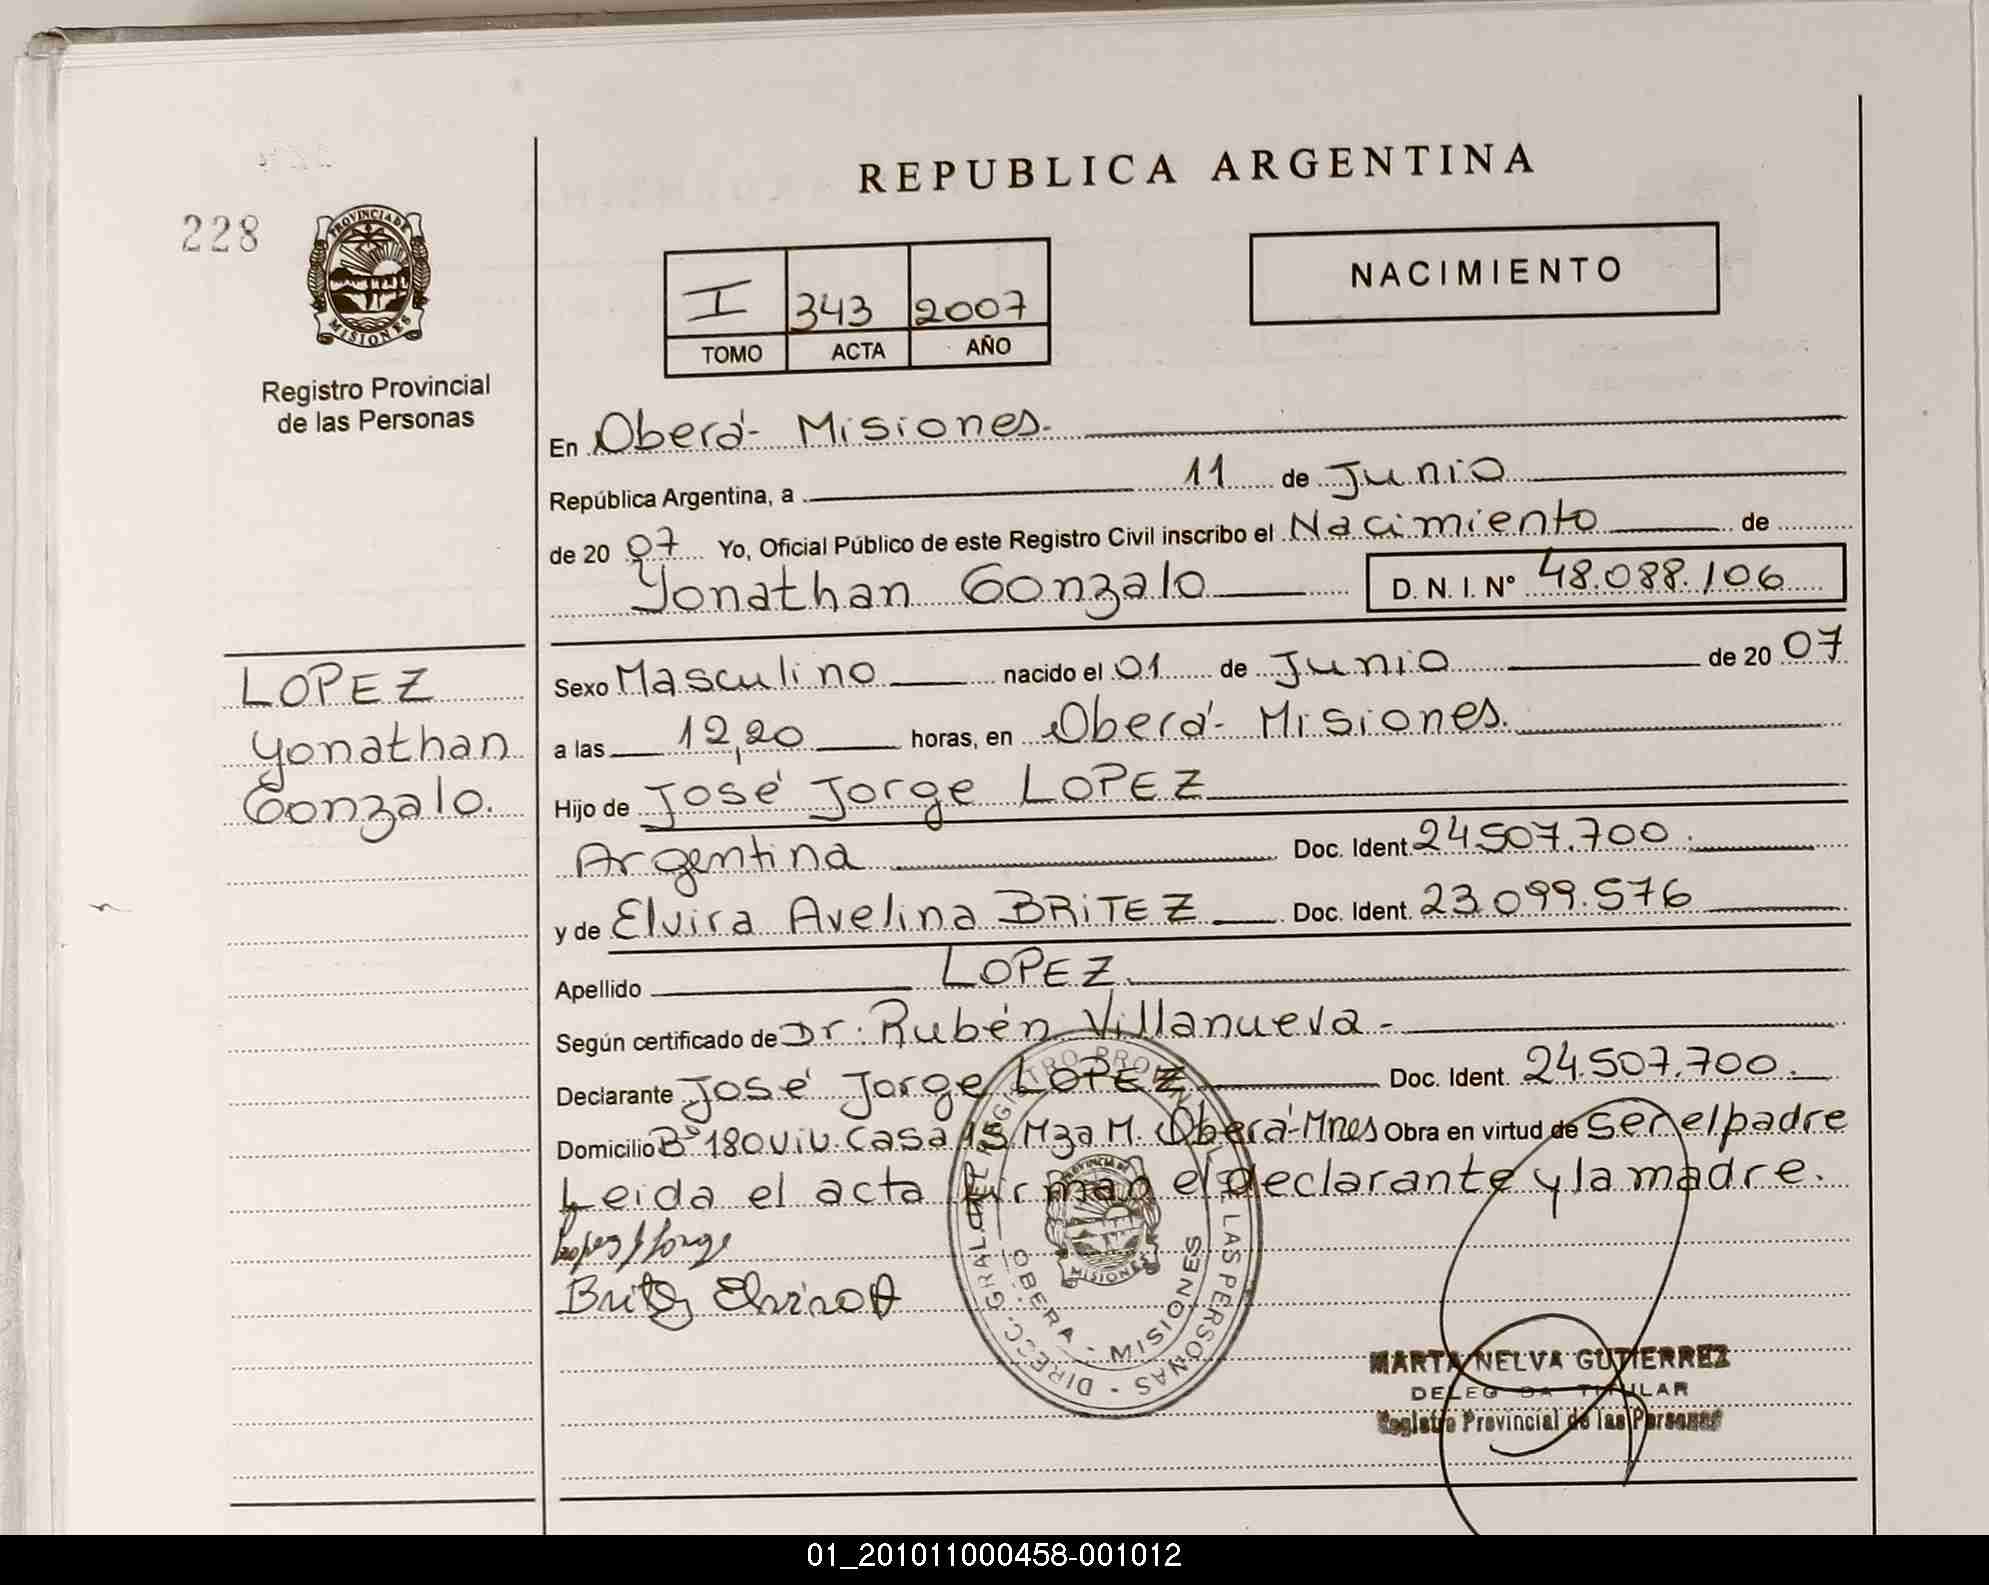 REPUBLICA ARGENTINA
228
PROVINCIA DE
MISIONES
Registro Provincial
de las Personas
I 343 2007
TOMO ACTA AÑO
NACIMIENTO
En Oberá- Misiones.
República Argentina, a 11 de Junio
de 20 07 Yo, Oficial Público de este Registro Civil inscribo el Nacimiento de
Yonathan Gonzalo D. N. I. N° 48.088.106
LOPEZ
Yonathan
Gonzalo.
Sexo Masculino nacido el 01 de Junio de 20 07
a las 12,20 horas, en Oberá- Misiones.
Hijo de José Jorge LOPEZ
Argentina Doc. Ident. 24.507.700.
y de Elvira Avelina BRITEZ Doc. Ident. 23.099.576
Apellido LOPEZ.
Según certificado de Dr. Rubén Villanueva -
Declarante José Jorge LOPEZ Doc. Ident. 24.507.700.
Domicilio B° 180 viv. Casa 15 Mza M. Oberá-Mnes Obra en virtud de ser el padre
Leida el acta firman el declarante y la madre.
Lopez J Jorge
Britez Elvira A
DIRECC. GRAL. DEL REGISTRO PROVINCIAL DE LAS PERSONAS
PROVINCIA DE
MISIONES
OBERA - MISIONES
MARTA NELVA GUTIERREZ
DELEGADA TITULAR
Registro Provincial de las Personas
01_201011000458-001012